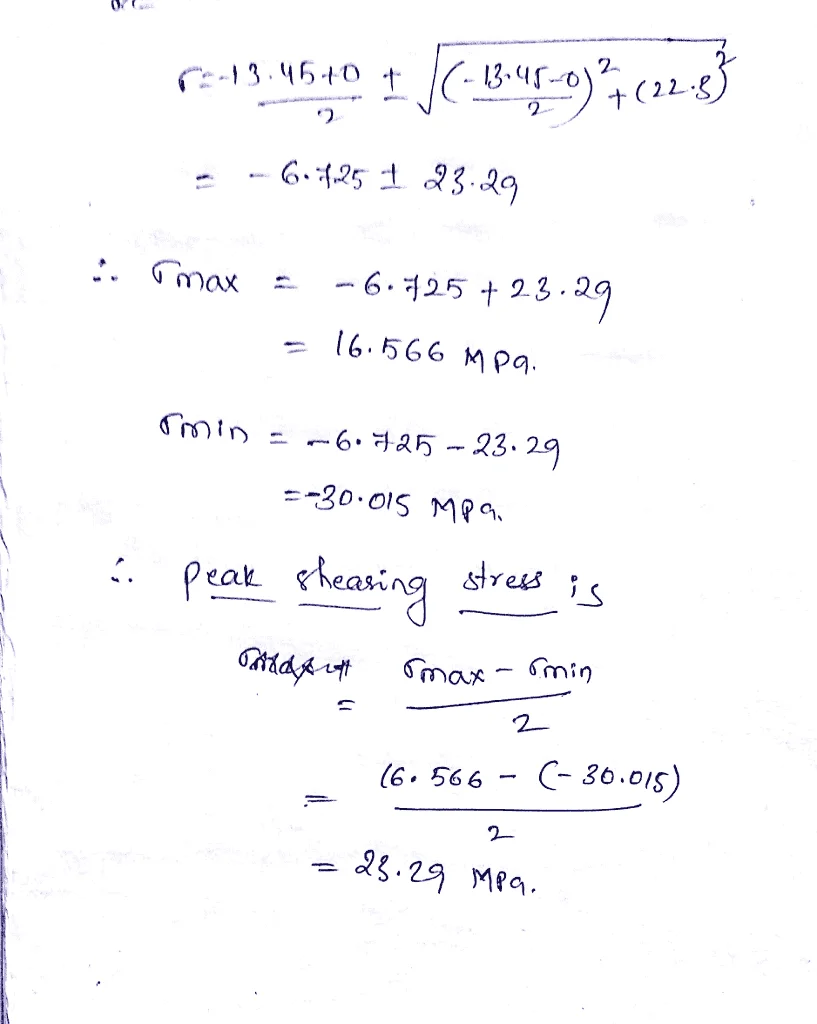 σ = -13.45+0 / 2 ± √((-13.45-0 / 2)² + (22.3)²)
= -6.725 ± 23.29
∴ σmax = -6.725 + 23.29
= 16.566 MPa.
σmin = -6.725 - 23.29
= -30.015 MPa.
∴ Peak shearing stress is
= σmax - σmin / 2
= 16.566 - (-30.015) / 2
= 23.29 MPa.